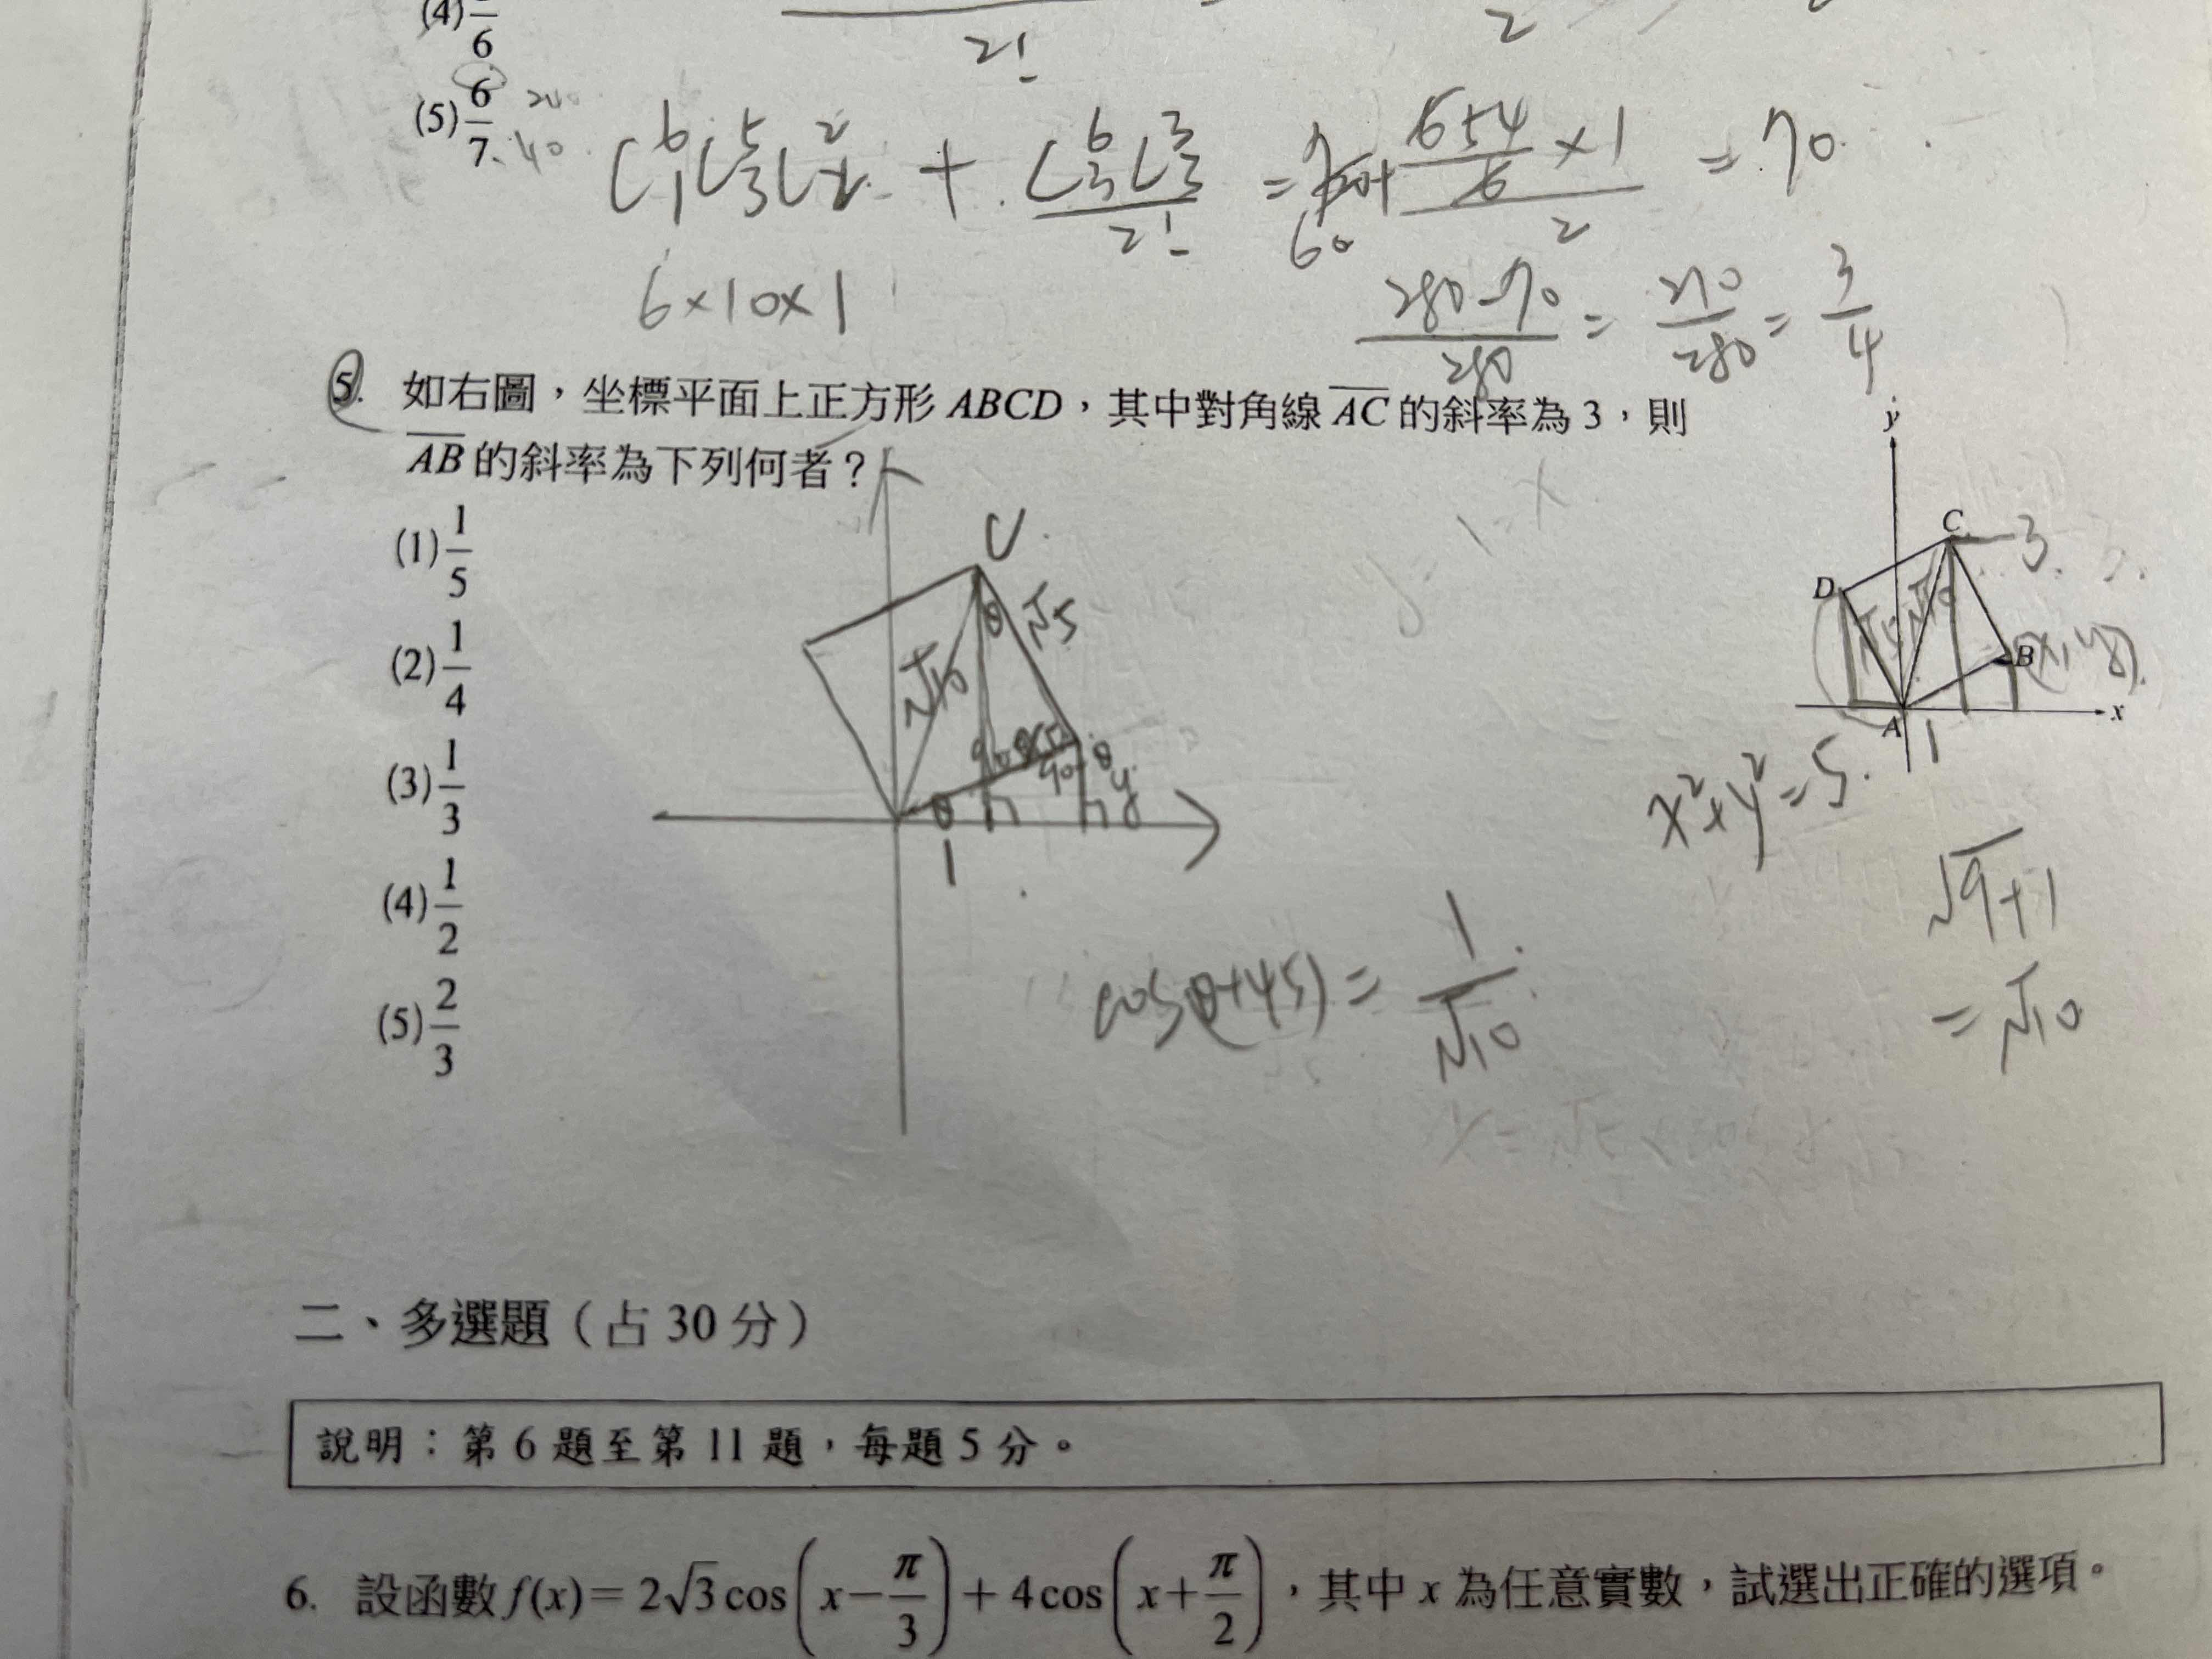 (4) 6
2!
2
(5) 6/7
40
C⁶₁C⁵₃C²₂ + C⁶₃C³₃/2! = 60+ (654/6 × 1)/2 = 70
6×10×1
(280-70)/280 = 210/280 = 3/4
5. 如右圖，坐標平面上正方形 ABCD，其中對角線 AC 的斜率為 3，則
AB 的斜率為下列何者？
(1) 1/5
(2) 1/4
(3) 1/3
(4) 1/2
(5) 2/3
C
√5
√10
θ
90-θ
y
1
y
C 3
D
√5 √10
B (x, y)
A 1 x
x²+y²=5.
√9+1
=√10
cos(θ+45) = 1/√10
二、多選題（占 30 分）
說明：第 6 題至第 11 題，每題 5 分。
6. 設函數 f(x)= 2√3 cos(x−π/3)+4cos(x+π/2)，其中 x 為任意實數，試選出正確的選項。